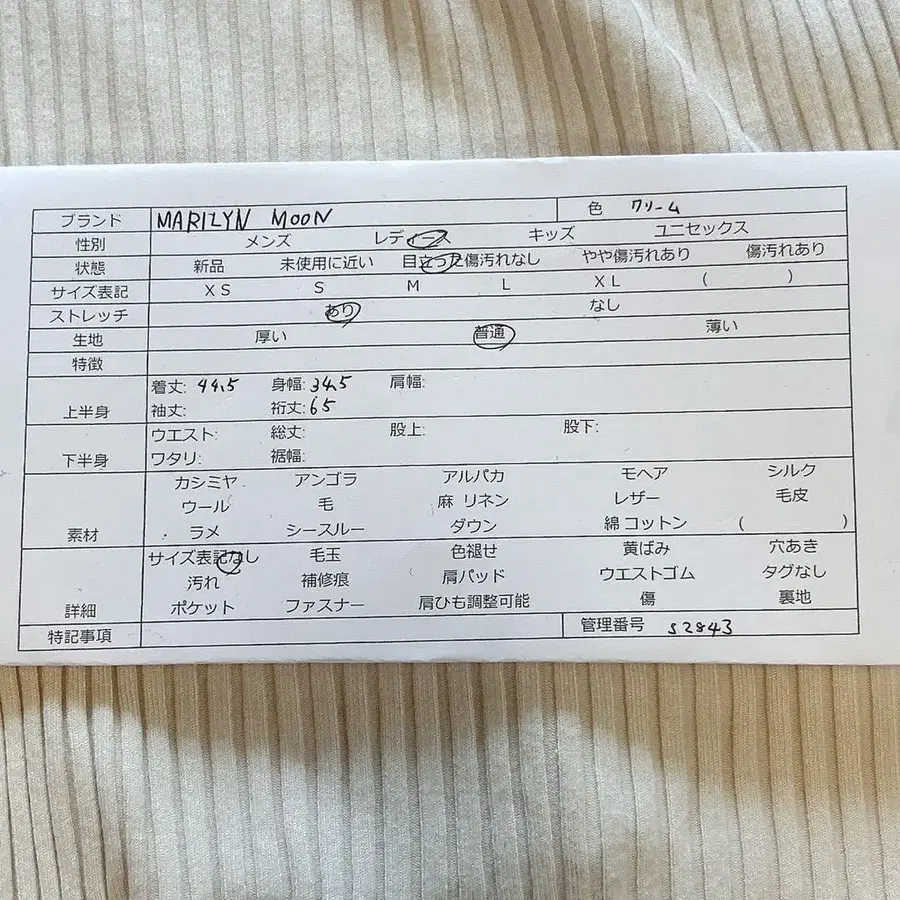 ブランド MARILYN MOON 色 クリーム
性別 メンズ レディース キッズ ユニセックス
状態 新品 未使用に近い 目立った傷汚れなし やや傷汚れあり 傷汚れあり
サイズ表記 XS S M L XL ( )
ストレッチ あり なし
生地 厚い 普通 薄い
特徴
上半身 着丈: 44.5 身幅: 34.5 肩幅:
袖丈: 裄丈: 65
下半身 ウエスト: 総丈: 股上: 股下:
ワタリ: 裾幅:
素材 カシミヤ アンゴラ アルパカ モヘア シルク
ウール 毛 麻 リネン レザー 毛皮
ラメ シースルー ダウン 綿 コットン ( )
詳細 サイズ表記なし 毛玉 色褪せ 黄ばみ 穴あき
汚れ 補修痕 肩パッド ウエストゴム タグなし
ポケット ファスナー 肩ひも調整可能 傷 裏地
特記事項 管理番号 S2843